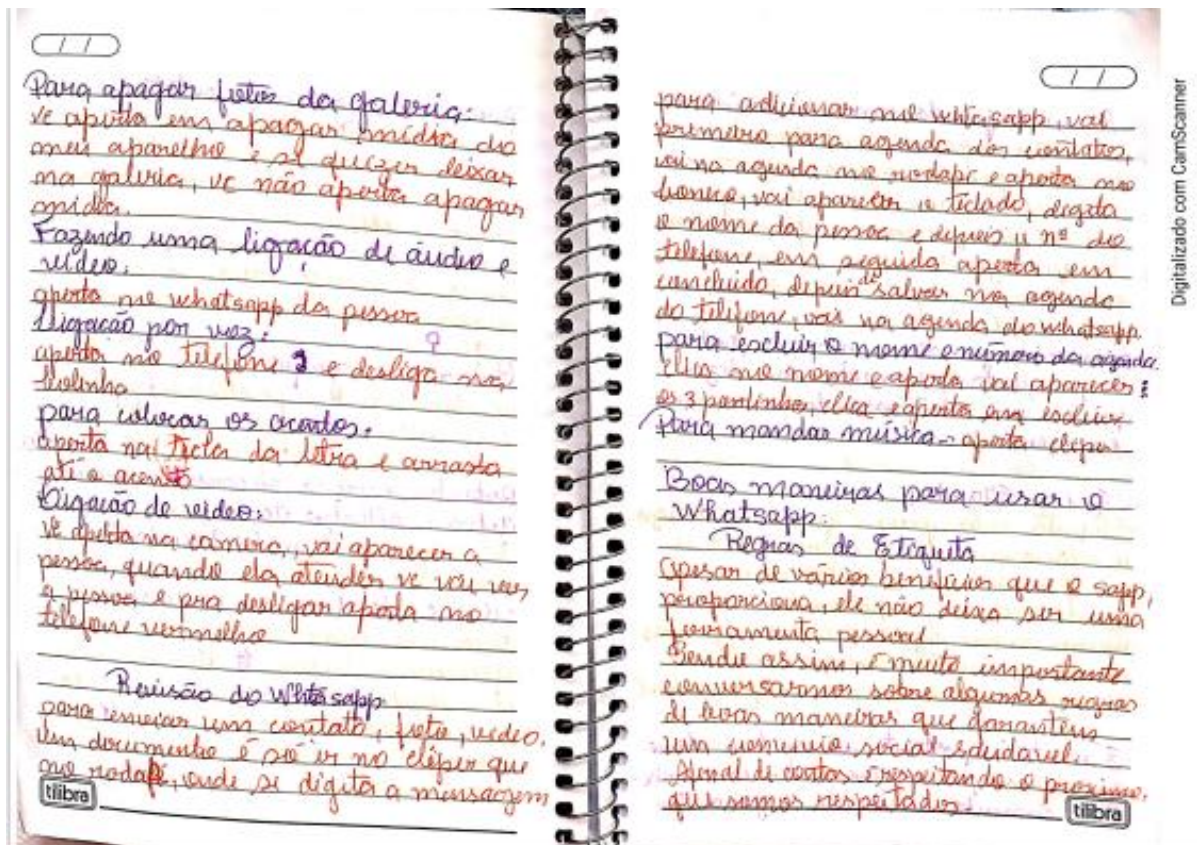 Para apagar fotos da galeria:
vc aperta em apagar mídia do
meu aparelho e se quizer deixar
na galeria, vc não aperta apagar
mídia.
Fazendo uma ligação de áudio e
vídeo.
aperta no whatsapp da pessoa
Ligação por voz:
aperta no telefone e desliga na
bolinha
para colocar os acentos.
aperta na tecla da letra e arrasta
até o acento
Ligação de vídeo:
vc aperta na câmera, vai aparecer a
pessoa, quando ela atender vc vai ver
a pessoa e pra desligar aperta no
telefone vermelho
Revisão do Whatsapp
para enviar um contato, foto, vídeo,
um documento é só ir no clipes que
no rodapé, onde se digita a mensagem
tilibra
para adicionar no whtasapp, vai
primeiro para agenda dos contatos,
vai na agenda no rodapé e aperta no
boneco, vai aparecer o teclado, digita
o nome da pessoa e depois o nº do
telefone, em seguida aperta em
concluido, depois de salvar na agenda
do telefone, vais na agenda do whatsapp.
para excluir o nome e número da agenda.
clica no nome e aperta vai aparecer :
os 3 pontinhos, clica e aperta em excluir.
Para mandar música - aperta clipes
Boas maneiras para usar o
Whatsapp:
Regras de Etiqueta
Apesar de vários benefícios que o sapp,
proporciona, ele não deixa ser uma
ferramenta pessoal
Sendo assim, é muito importante
conversarmos sobre algumas regras
de boas maneiras que garantem
um convívio social saudável.
Afinal de contas é respeitando o proximo,
que somos respeitados.
tilibra
Digitalizado com CamScanner